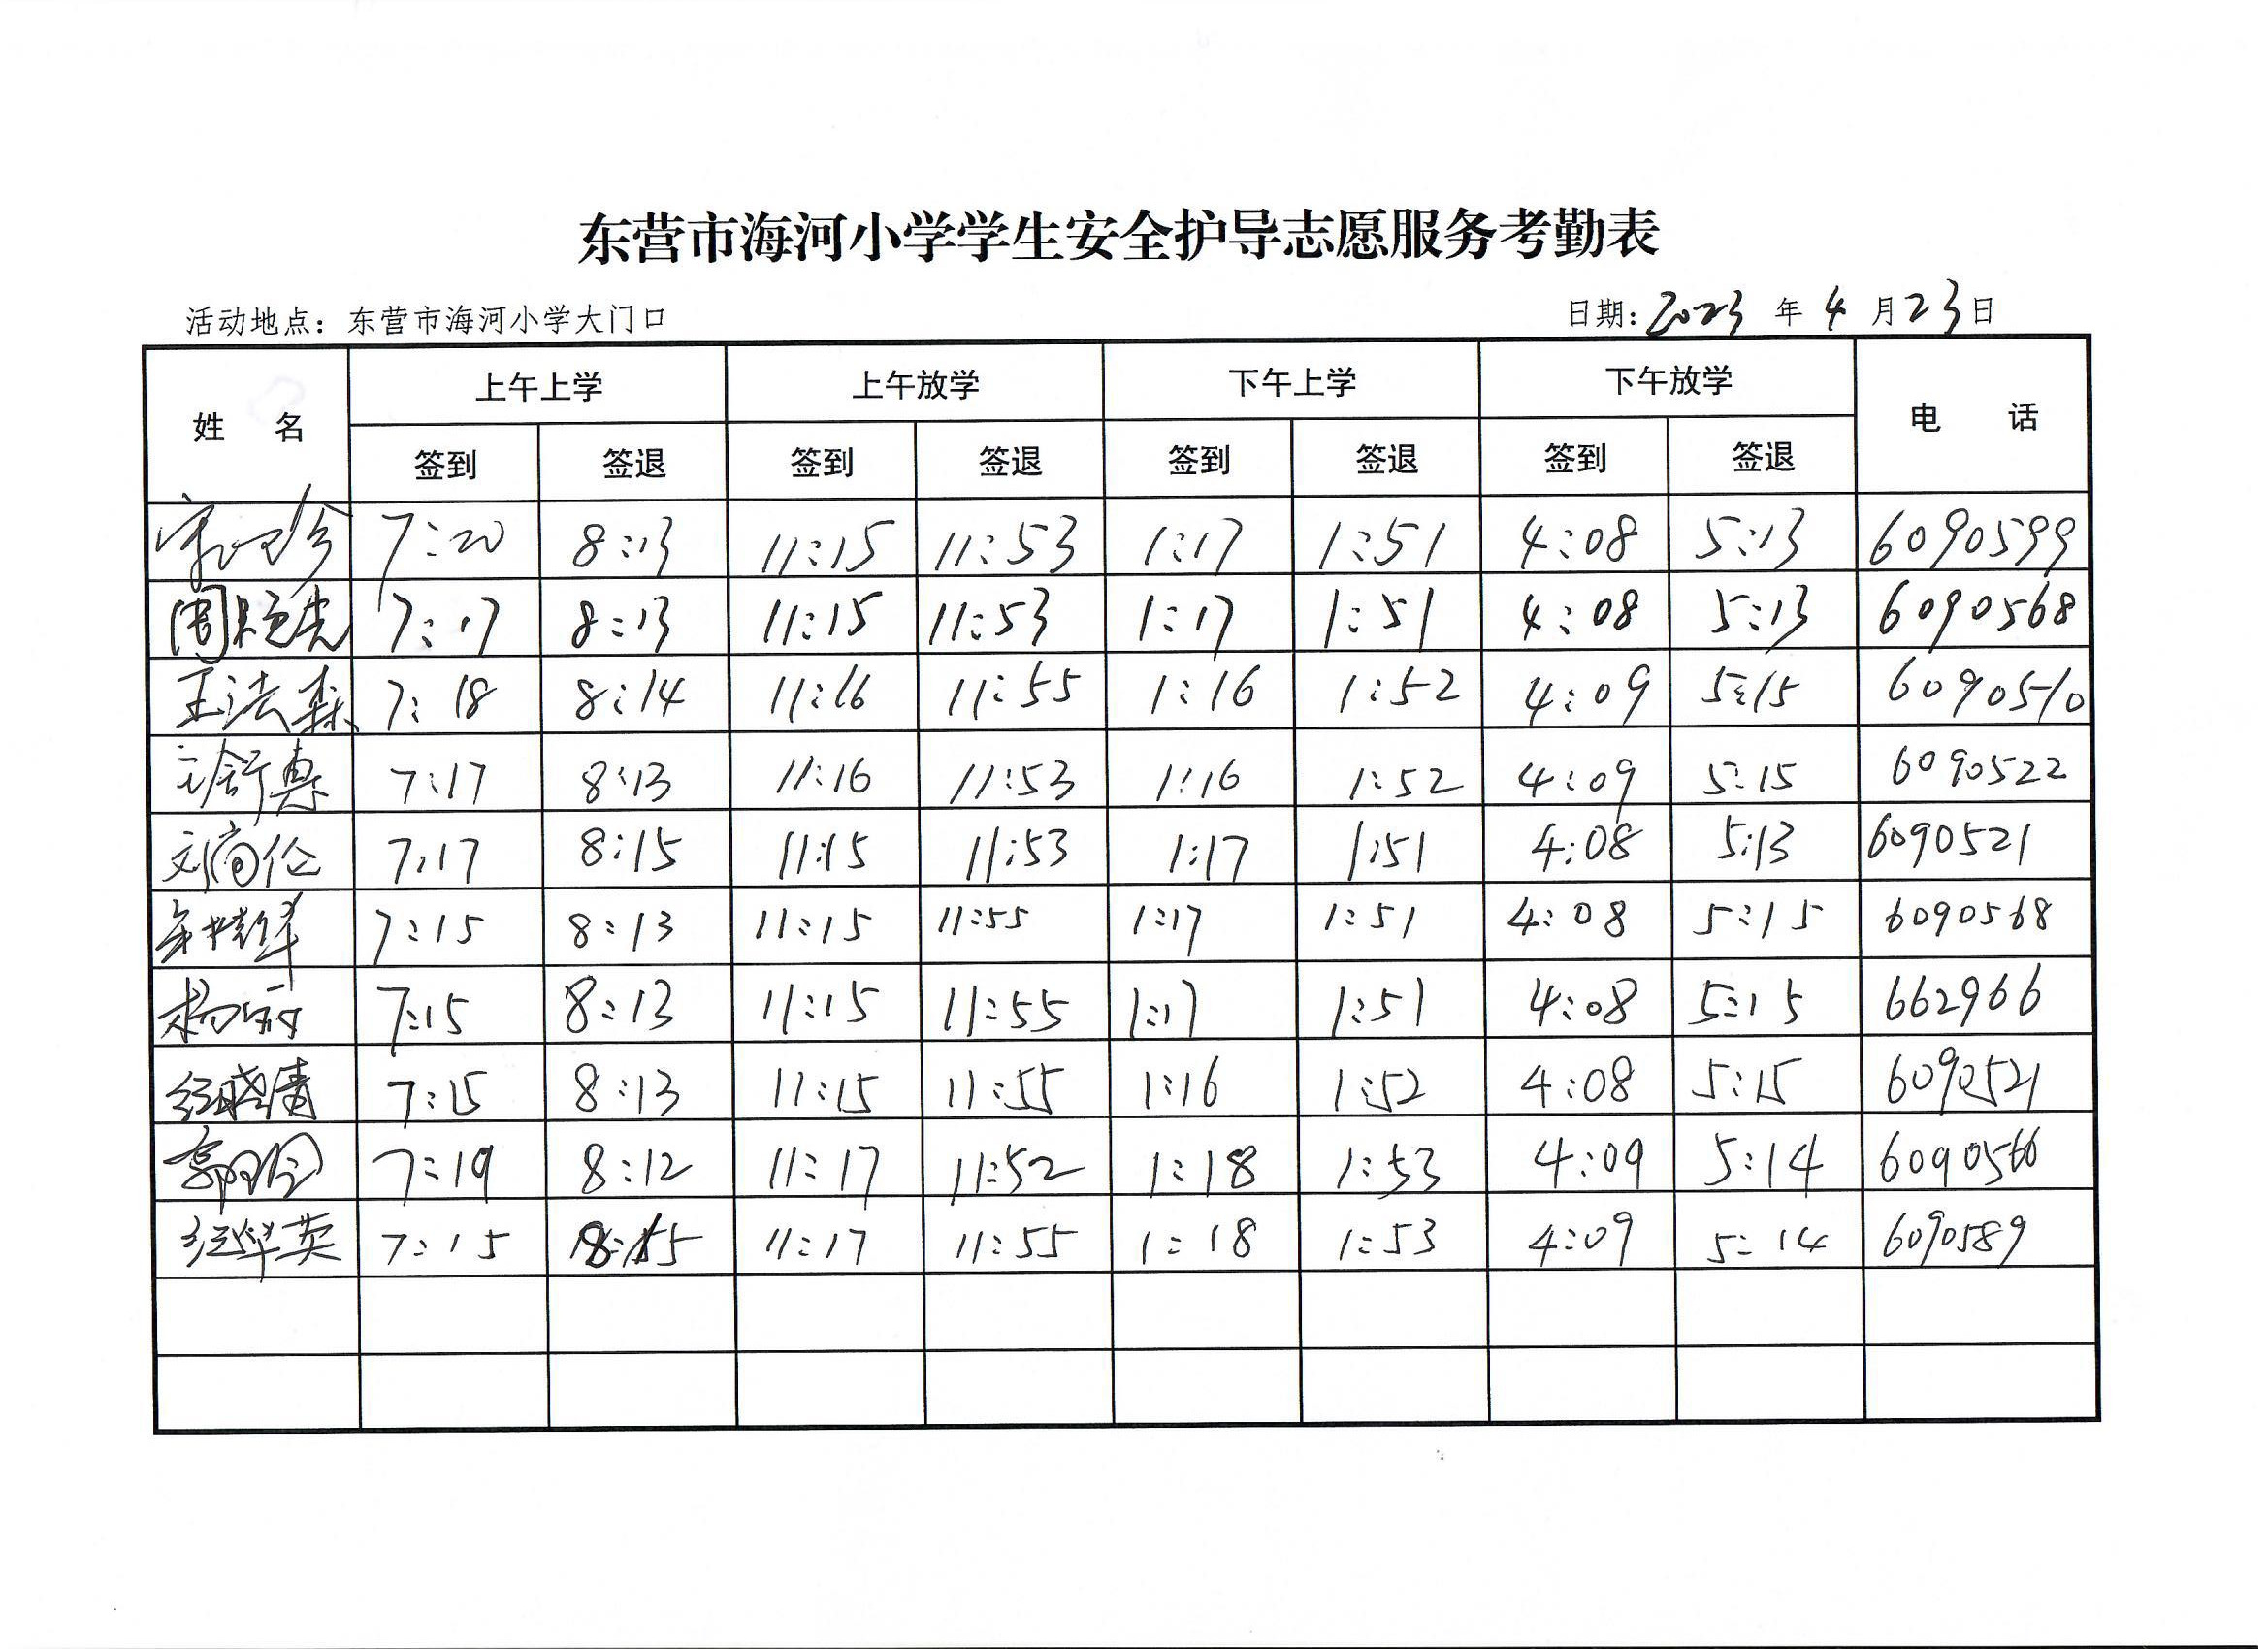 东营市海河小学学生安全护导志愿服务考勤表
活动地点：东营市海河小学大门口 日期：2023 年 4 月 23 日
姓 名 上午上学 上午放学 下午上学 下午放学 电 话
签到 签退 签到 签退 签到 签退 签到 签退
7:20 8:13 11:15 11:53 1:17 1:51 4:08 5:13 6090599
7:17 8:13 11:15 11:53 1:17 1:51 4:08 5:13 6090568
王法森 7:18 8:14 11:16 11:55 1:16 1:52 4:09 5:15 6090510
7:17 8:13 11:16 11:53 1:16 1:52 4:09 5:15 6090522
7:17 8:15 11:15 11:53 1:17 1:51 4:08 5:13 6090521
7:15 8:13 11:15 11:55 1:17 1:51 4:08 5:15 6090568
杨丽 7:15 8:13 11:15 11:55 1:17 1:51 4:08 5:15 662966
7:15 8:13 11:15 11:55 1:16 1:52 4:08 5:15 6090521
7:19 8:12 11:17 11:52 1:18 1:53 4:09 5:14 6090566
7:15 8:15 11:17 11:55 1:18 1:53 4:09 5:14 6090589